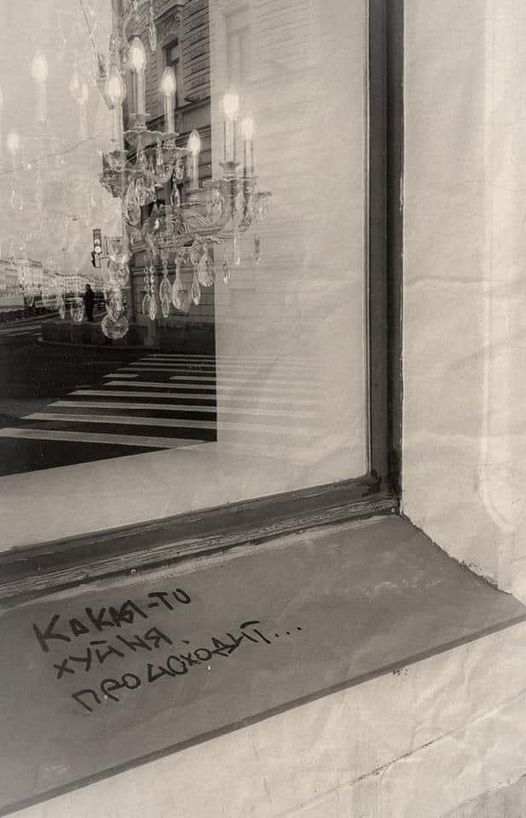 Какая-то
хуйня
происходит...